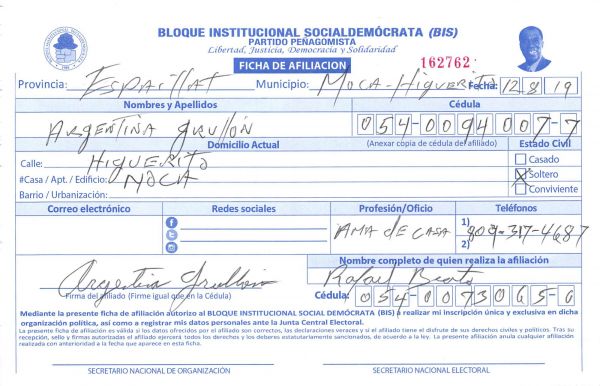 BLOQUE INSTITUCIONAL SOCIALDEMÓCRATA (BIS)
PARTIDO PEÑAGOMISTA
Libertad, Justicia, Democracia y Solidaridad
FICHA DE AFILIACION
162762
Provincia: Espaillat Municipio: Moca-Higuerito Fecha: 12/8/19
Nombres y Apellidos Cédula
Argentina Grullón 054-0094007-7
Domicilio Actual (Anexar copia de cédula del afiliado) Estado Civil
Calle: Higuerito Casado
#Casa / Apt. / Edificio: Moca Soltero
Barrio / Urbanización: Conviviente
Correo electrónico Redes sociales Profesión/Oficio Teléfonos
Ama de casa 1) 809-317-4687
2)
Nombre completo de quien realiza la afiliación
Argentina Grullon Rafael
Firma del afiliado (Firme igual que en la Cédula) Cédula: 054-0073065-6
Mediante la presente ficha de afiliación autorizo al BLOQUE INSTITUCIONAL SOCIAL DEMÓCRATA (BIS) a realizar mi inscripción única y exclusiva en dicha
organización política, así como a registrar mis datos personales ante la Junta Central Electoral.
La presente ficha de afiliación es válida si los datos ofrecidos por el afiliado son correctos, las declaraciones veraces y si el afiliado tiene el disfrute de sus derechos civiles y políticos. Tras su
recepción, sello y firmas autorizadas el afiliado ejercerá todos los derechos y los deberes estatutariamente sancionados, de acuerdo a la ley. La presente afiliación anula cualquier afiliación
realizada con anterioridad a la fecha que aparece en esta ficha.
SECRETARIO NACIONAL DE ORGANIZACIÓN SECRETARIO NACIONAL ELECTORAL